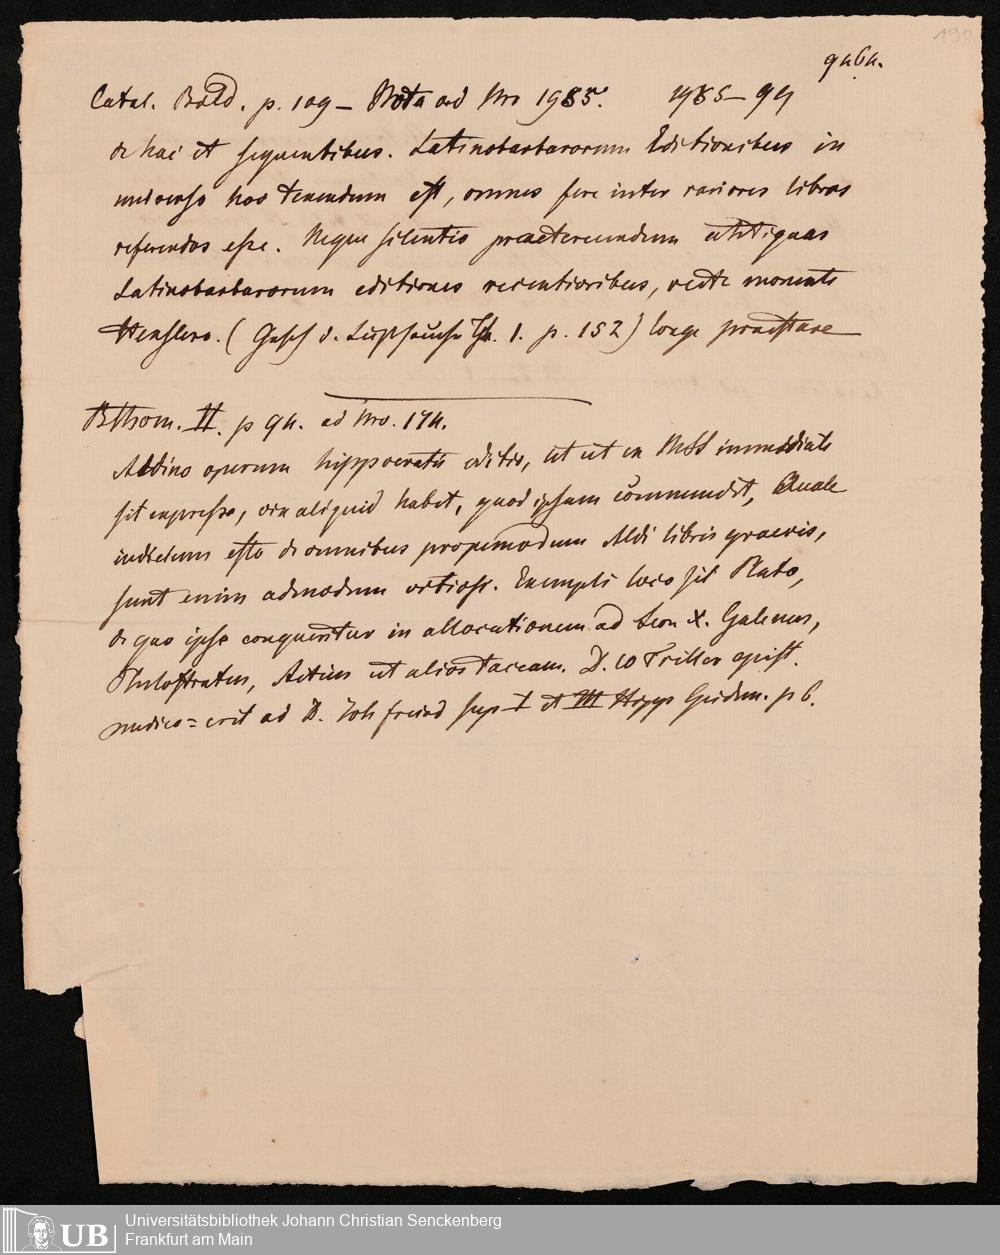 198
Catal. Bald. p. 109 – Nota ad Nro 1985. 1985 – 94
de hac et sequentibus. Latinobarbarorum Editionibus in
universo hoc tenendum est, omnes fere inter rariores libros
referendos esse. Neque silentio praetereundum antiquas
Latinobarbarorum editiones recentioribus, recte monente
Henslero. (Gesch d. Lustseuche Th. 1. p. 152) longe praestare
II. p 94. ad Nro. 174.
Aldino operum hippocratis editio, ut ut ex MSS immediate
sit expressa, vix aliquid habet, quod ipsam commendet, Quale
indicium esto de omnibus propemodum Aldi libris graecis,
sunt enim admodum vitiosi. Exempli loco sit Plato,
de quo ipse conqueritur in allocutionem ad Leon X. Galenus,
Philostratus, Aetius ut alios taceam. D. W Triller epist.
medico=crit ad D. Joh freind sup I et III Hipp Epidem. p 6.
UB
Universitätsbibliothek Johann Christian Senckenberg
Frankfurt am Main